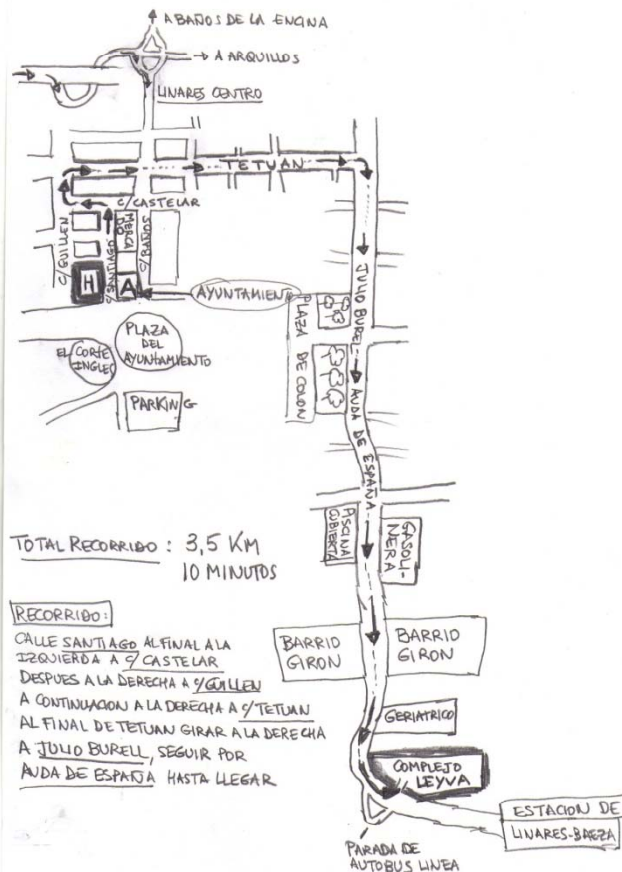 A BAÑOS DE LA ENCINA
→ A ARQUILLOS
LINARES CENTRO
TETUAN
C/ CASTELAR
C/ GUILLEN
C/ SANTIAGO
MERCA
DO
C/ BAÑOS
H
A
AYUNTAMIENTO
PLAZA
DEL
AYUNTAMIENTO
EL CORTE
INGLES
PARKING
JULIO BUREL
PLAZA DE COLON
AUDA DE ESPAÑA
PISCINA
CUBIERTA
GASOLI-
NERA
TOTAL RECORRIDO : 3,5 KM
10 MINUTOS
RECORRIDO:
CALLE SANTIAGO AL FINAL A LA
IZQUIERDA A C/ CASTELAR
DESPUES A LA DERECHA A C/ GUILLEN
A CONTINUACION A LA DERECHA A C/ TETUAN
AL FINAL DE TETUAN GIRAR A LA DERECHA
A JULIO BURELL, SEGUIR POR
AUDA DE ESPAÑA HASTA LLEGAR
BARRIO
GIRON
BARRIO
GIRON
GERIATRICO
COMPLEJO
LEYVA
ESTACION DE
LINARES-BAEZA
PARADA DE
AUTOBUS LINEA